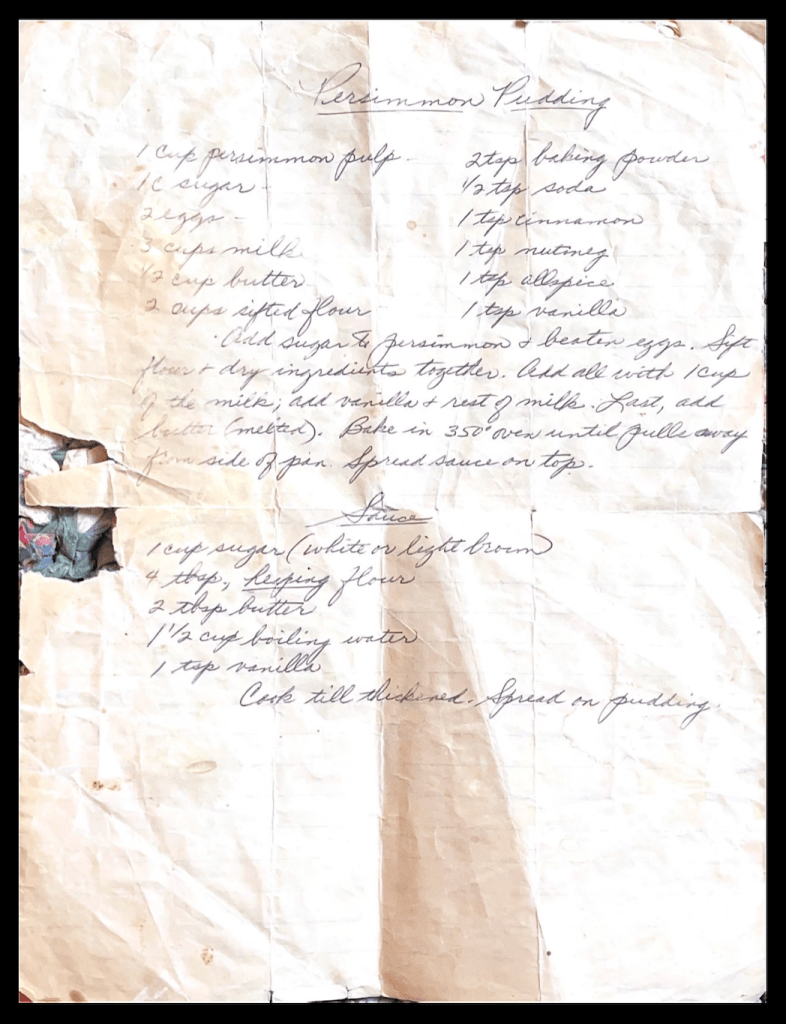 Persimmon Pudding
1 cup persimmon pulp -
1 c sugar -
2 eggs -
3 cups milk
1/2 cup butter
2 cups sifted flour
2 tsp baking powder
1/2 tsp soda
1 tsp cinnamon
1 tsp nutmeg
1 tsp allspice
1 tsp vanilla
Add sugar to persimmon + beaten eggs. Sift
flour + dry ingredients together. Add all with 1 cup
of the milk; add vanilla + rest of milk. Last, add
butter (melted). Bake in 350° oven until pulls away
from side of pan. Spread sauce on top.
Sauce
1 cup sugar (white or light brown)
4 tbsp, heeping flour
2 tbsp butter
1 1/2 cup boiling water
1 tsp vanilla
Cook till thickened. Spread on pudding.